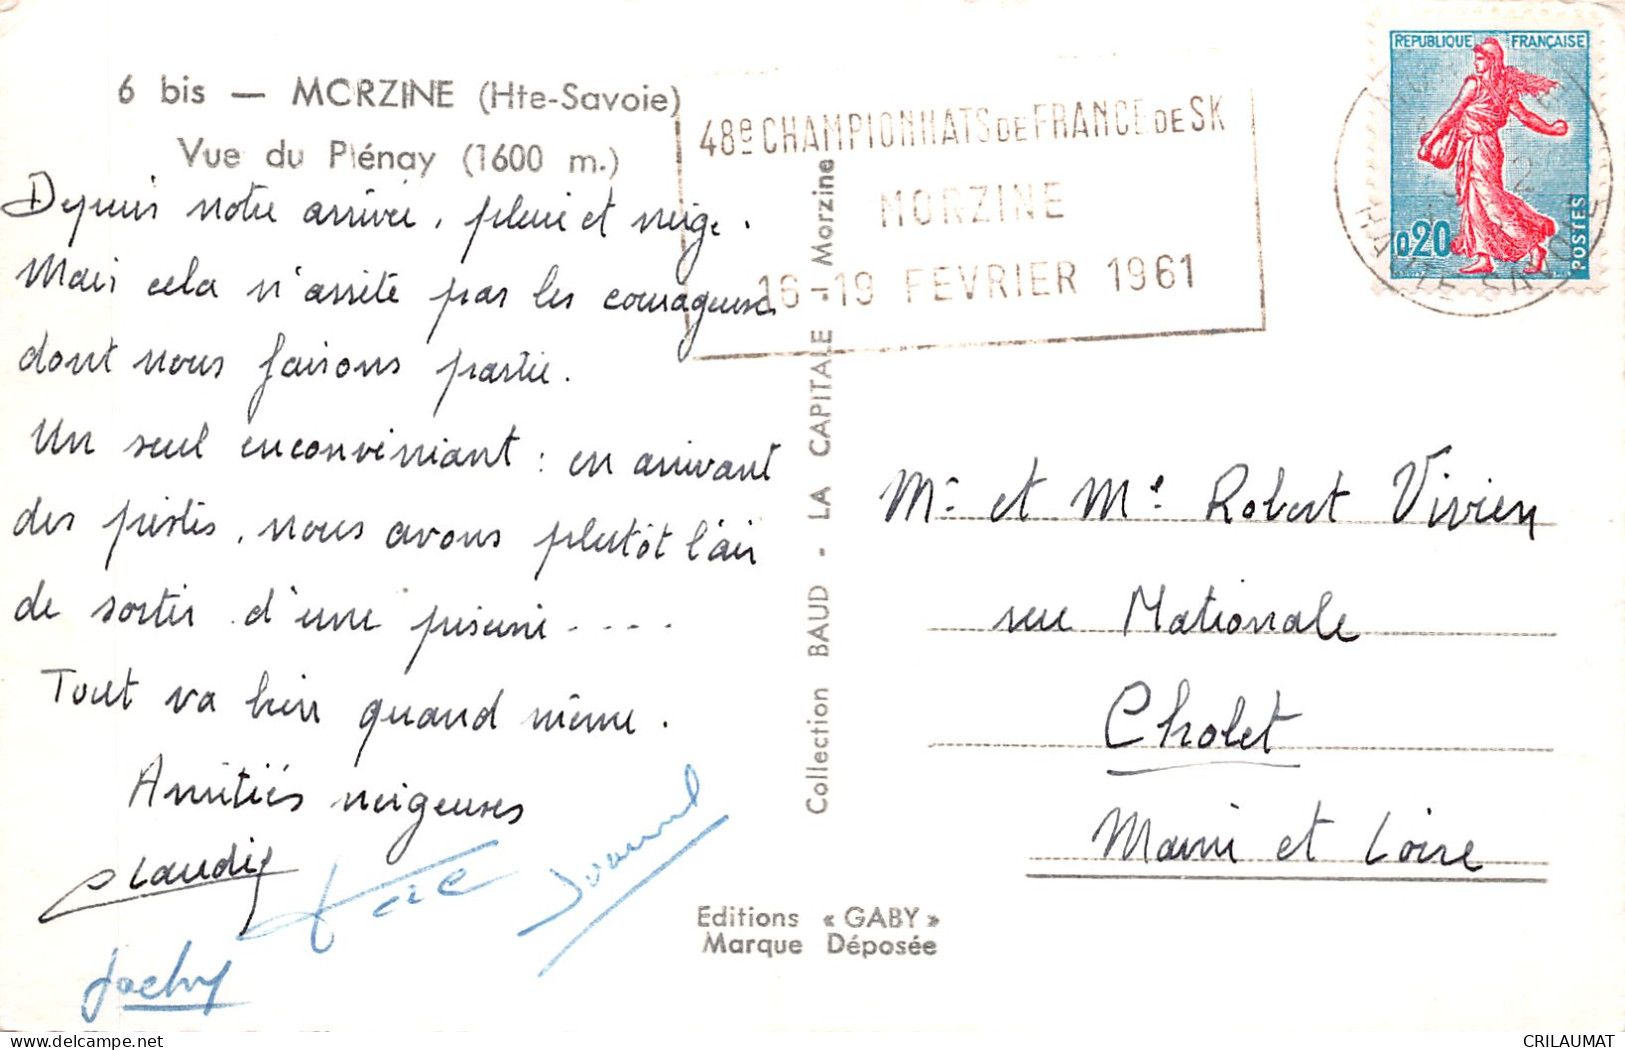 6 bis — MORZINE (Hte-Savoie)
Vue du Plénay (1600 m.)
Depuis notre arrivée, pluie et neige.
Mais cela n'arrête pas les courageuses
dont nous faisons partie.
Un seul inconvéniant : en arrivant
des pistes, nous avons plutôt l'air
de sortir d'une piscine ....
Tout va bien quand même.
Amitiés neigeuses
Claudie
Jacky
Collection BAUD - LA CAPITALE - Morzine
Editions « GABY »
Marque Déposée
48e CHAMPIONNATS DE FRANCE DE SK
MORZINE
16-19 FEVRIER 1961
REPUBLIQUE FRANÇAISE
0,20
POSTES
HAUTE SAVOIE
Mr et Me Robert Vivien
rue Nationale
Cholet
Maine et Loire
CRILAUMAT